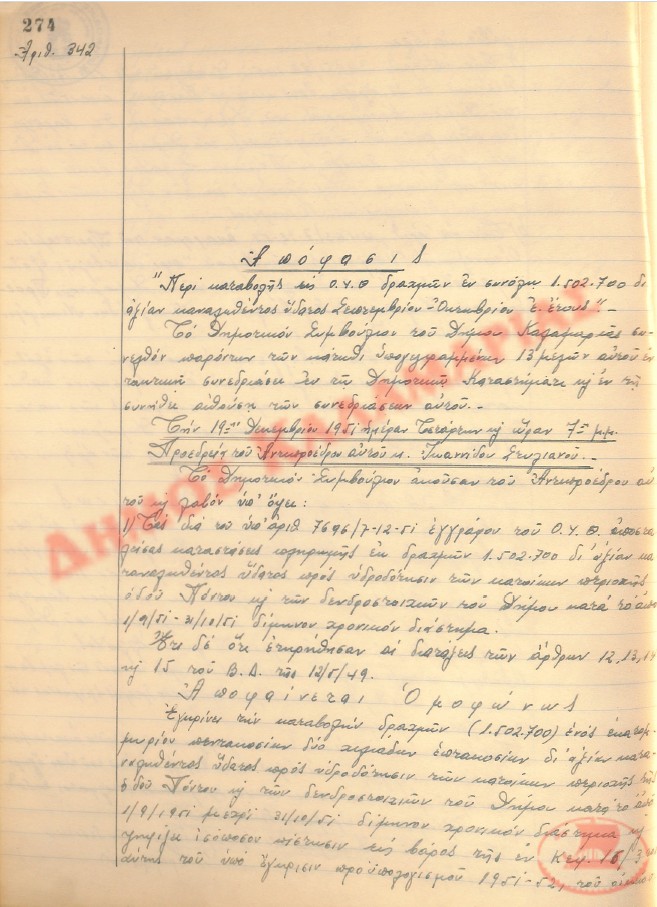 274
Ἀριθ. 342
Ἀπόφασις
"Περί καταβολῆς εἰς Ο.Υ.Θ δραχμῶν ἐν συνόλῳ 1.502.700 δι'
ἀξίαν καταναλωθέντος ὕδατος Σεπτεμβρίου-Ὀκτωβρίου ἐ. ἔτους".-
Τό Δημοτικόν Συμβούλιον τοῦ Δήμου Καλαμαριᾶς συ-
νελθόν παρόντων τῶν κάτωθι ὑπογεγραμμένων 13 μελῶν αὐτοῦ ἐν
τακτικῇ συνεδριάσει ἐν τῷ Δημοτικῷ Καταστήματι κ ἐν τῇ
συνήθει αἰθούσῃ τῶν συνεδριάσεων αὐτοῦ.-
Τήν 19ην Δεκεμβρίου 1951 ἡμέραν Τετάρτην κ ὥραν 7ην μμ.
Προεδρίᾳ τοῦ Ἀντιπροέδρου αὐτοῦ κ. Ἰωαννίδου Στυλιανοῦ.-
Τό Δημοτικόν Συμβούλιον ἀκοῦσαν τοῦ Ἀντιπροέδρου αὐ-
τοῦ κ λαβόν ὑπ' ὄψει:
1) Τάς διά τοῦ ὑπ' ἀριθ 7696/7-12-51 ἐγγράφου τοῦ Ο.Υ.Θ. ἀποστα-
λείσας καταστάσεις πληρωμῆς ἐκ δραχμῶν 1.502.700 δι' ἀξίαν κα-
ταναλωθέντος ὕδατος πρός ὑδροδότησιν τῶν κατοίκων περιοχῆς
ὁδοῦ Πόντου κ τῶν δενδροστοιχιῶν τοῦ Δήμου κατά τό ἀπό
1/9/51-31/10/51 δίμηνον χρονικόν διάστημα.
Ἔτι δέ ὅτι ἐτηρήθησαν αἱ διατάξεις τῶν ἄρθρων 12, 13, 14
κ 15 τοῦ Β.Δ. τῆς 12/5/49.
Ἀποφαίνεται Ὁμοφώνως
Ἐγκρίνει τήν καταβολήν δραχμῶν (1.502.700) ἑνός ἑκατομ-
μυρίου πεντακοσίων δύο χιλιάδων ἑπτακοσίων δι' ἀξίαν κατα-
ναλωθέντος ὕδατος πρός ὑδροδότησιν τῶν κατοίκων περιοχῆς τῆς
ὁδοῦ Πόντου κ τῶν δενδροστοιχιῶν τοῦ Δήμου κατά τό ἀπό
1/9/1951 μέχρι 31/10/51 δίμηνον χρονικόν διάστημα κ
ψηφίζει ἰσόποσον πίστωσιν εἰς βάρος τῆς ἐν Κεφ. 15/3
τοῦ ὑπό ἔγκρισιν προϋπολογισμοῦ 1951-52, τοῦ
ΔΗΜΟΣ ΚΑΛΑΜΑΡΙΑΣ